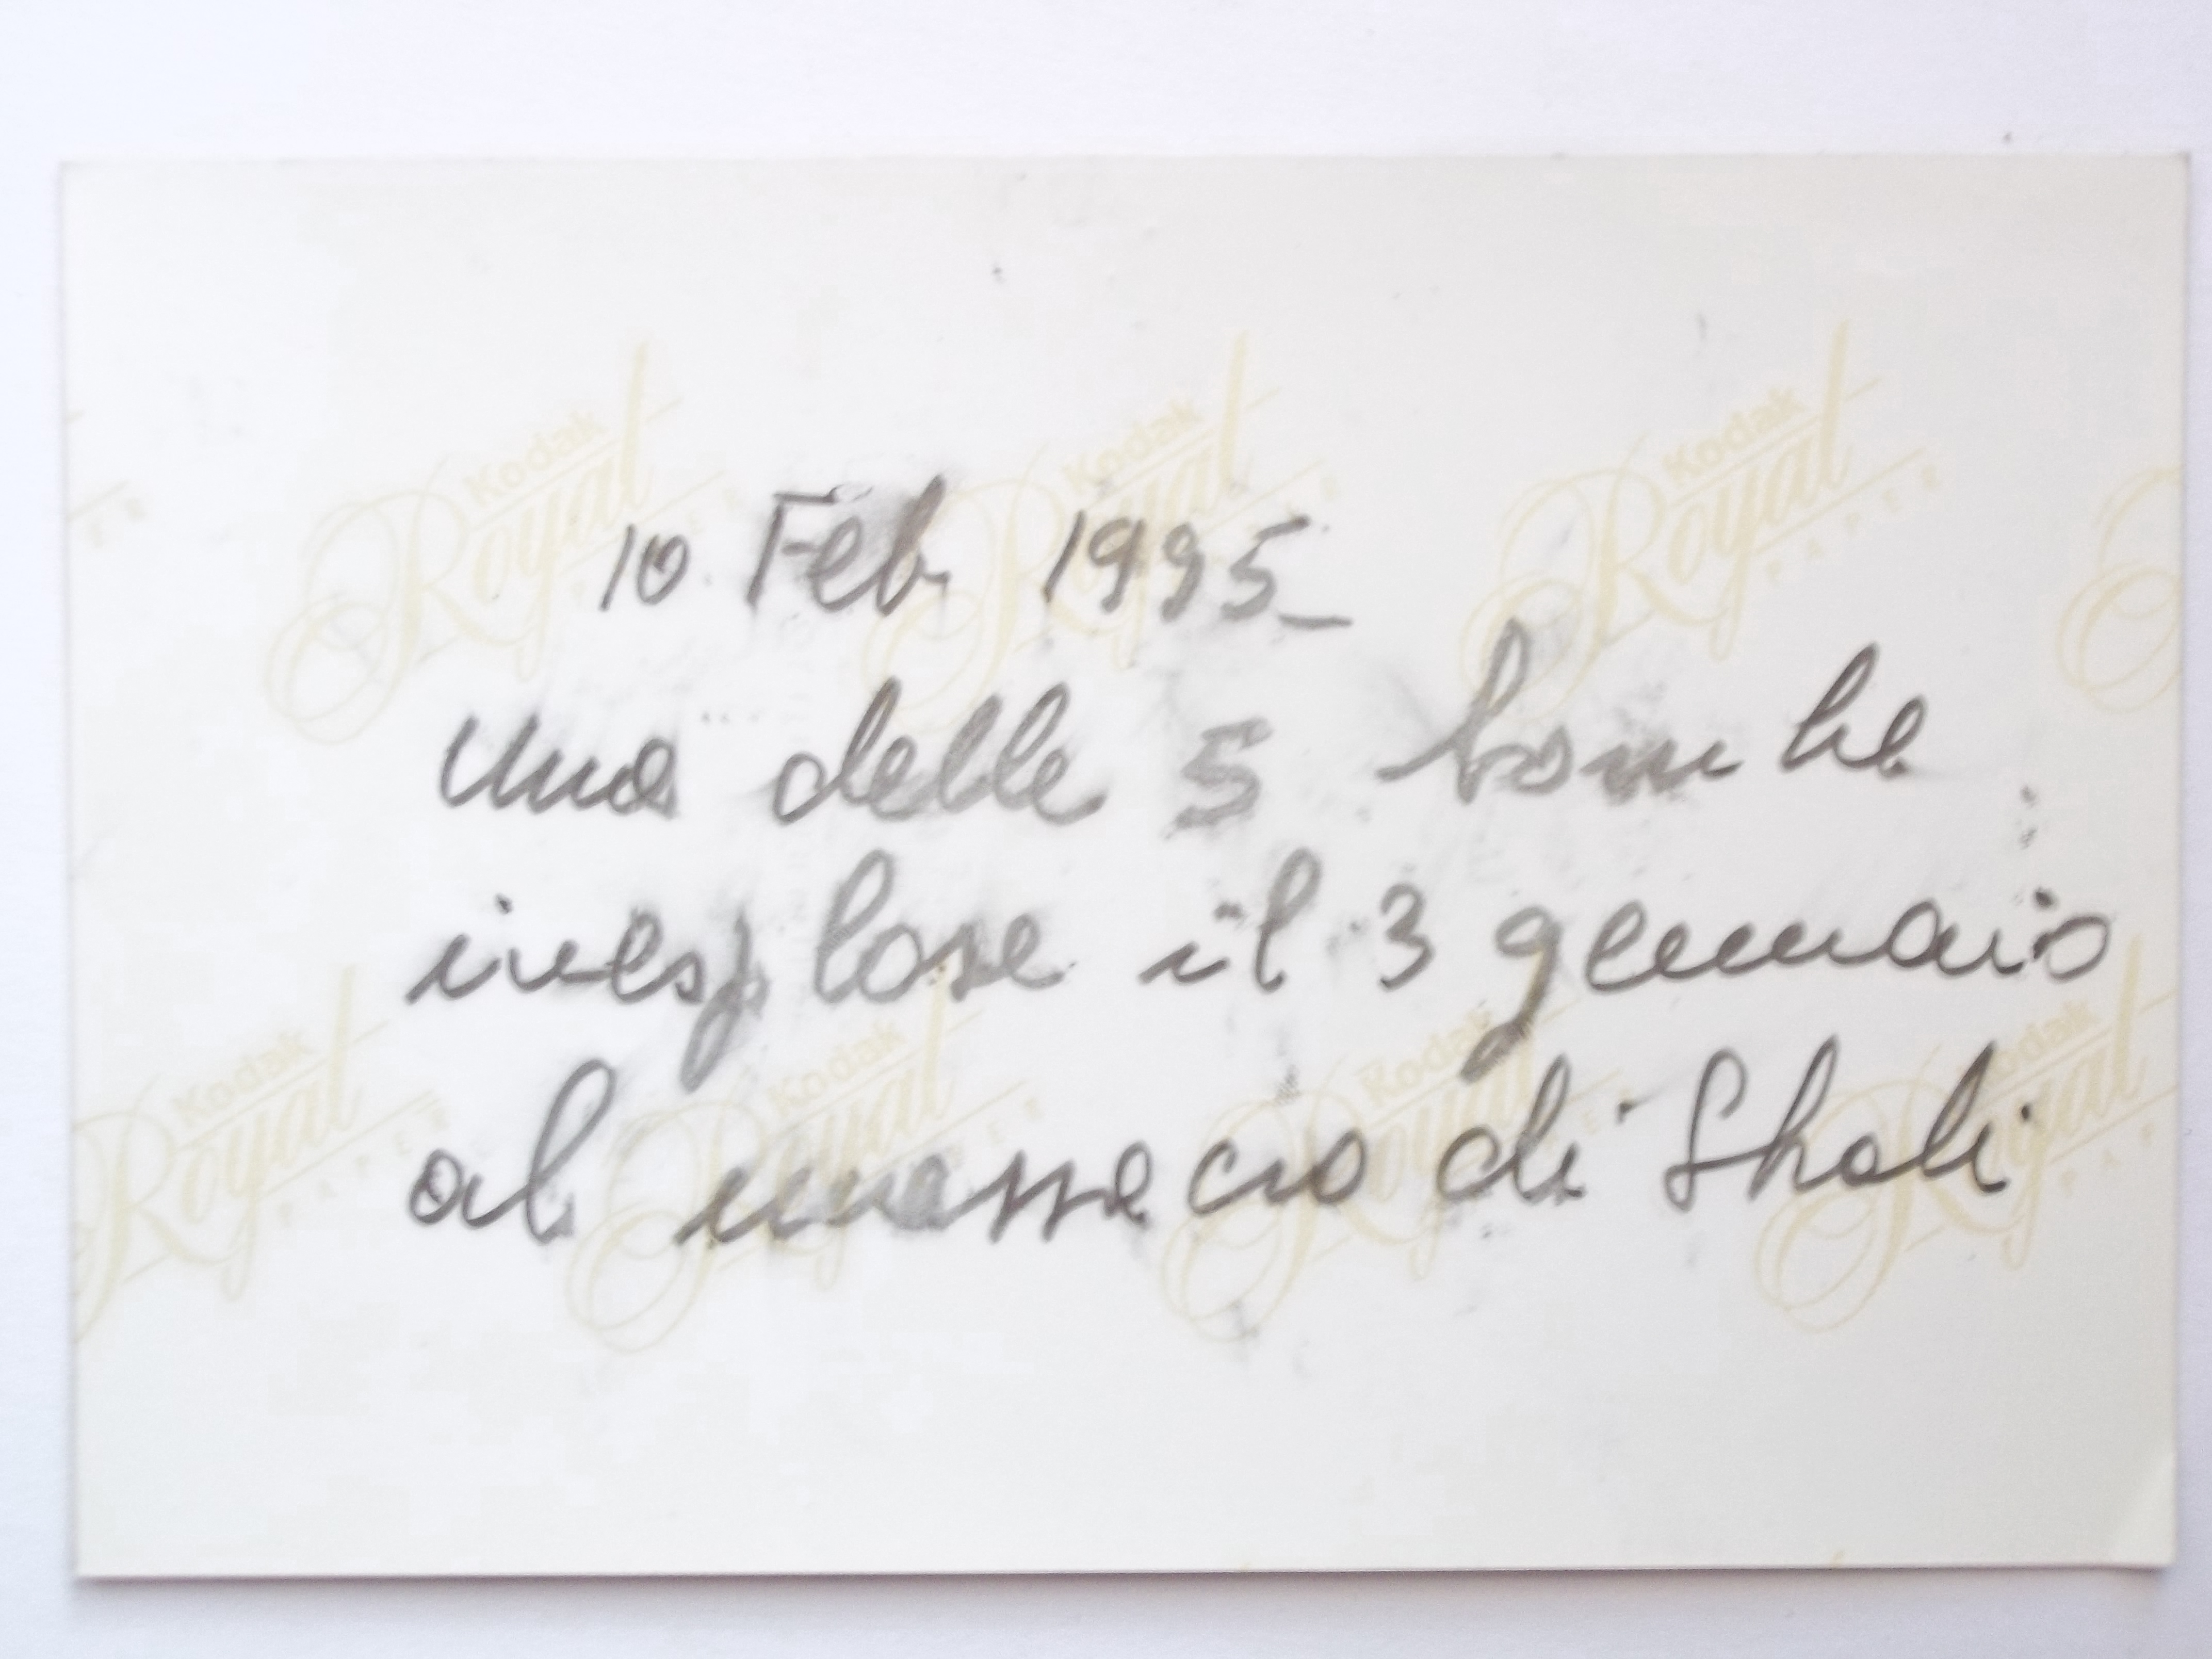 10 Feb 1995_
Una delle 5 bombe
inesplose il 3 gennaio
al massacro di Shali
Kodak
Royal
PAPER
Kodak
Royal
PAPER
Kodak
Royal
PAPER
Kodak
Royal
PAPER
Kodak
Royal
PAPER
Kodak
Royal
PAPER
Kodak
Royal
PAPER